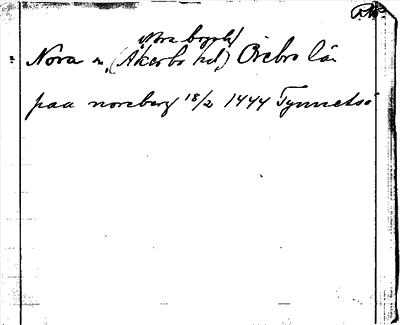 Nora bergslag
Nora n. (Åkerbo hd) Örebro län
paa noraberg 18/2 1444 Tynnetsö